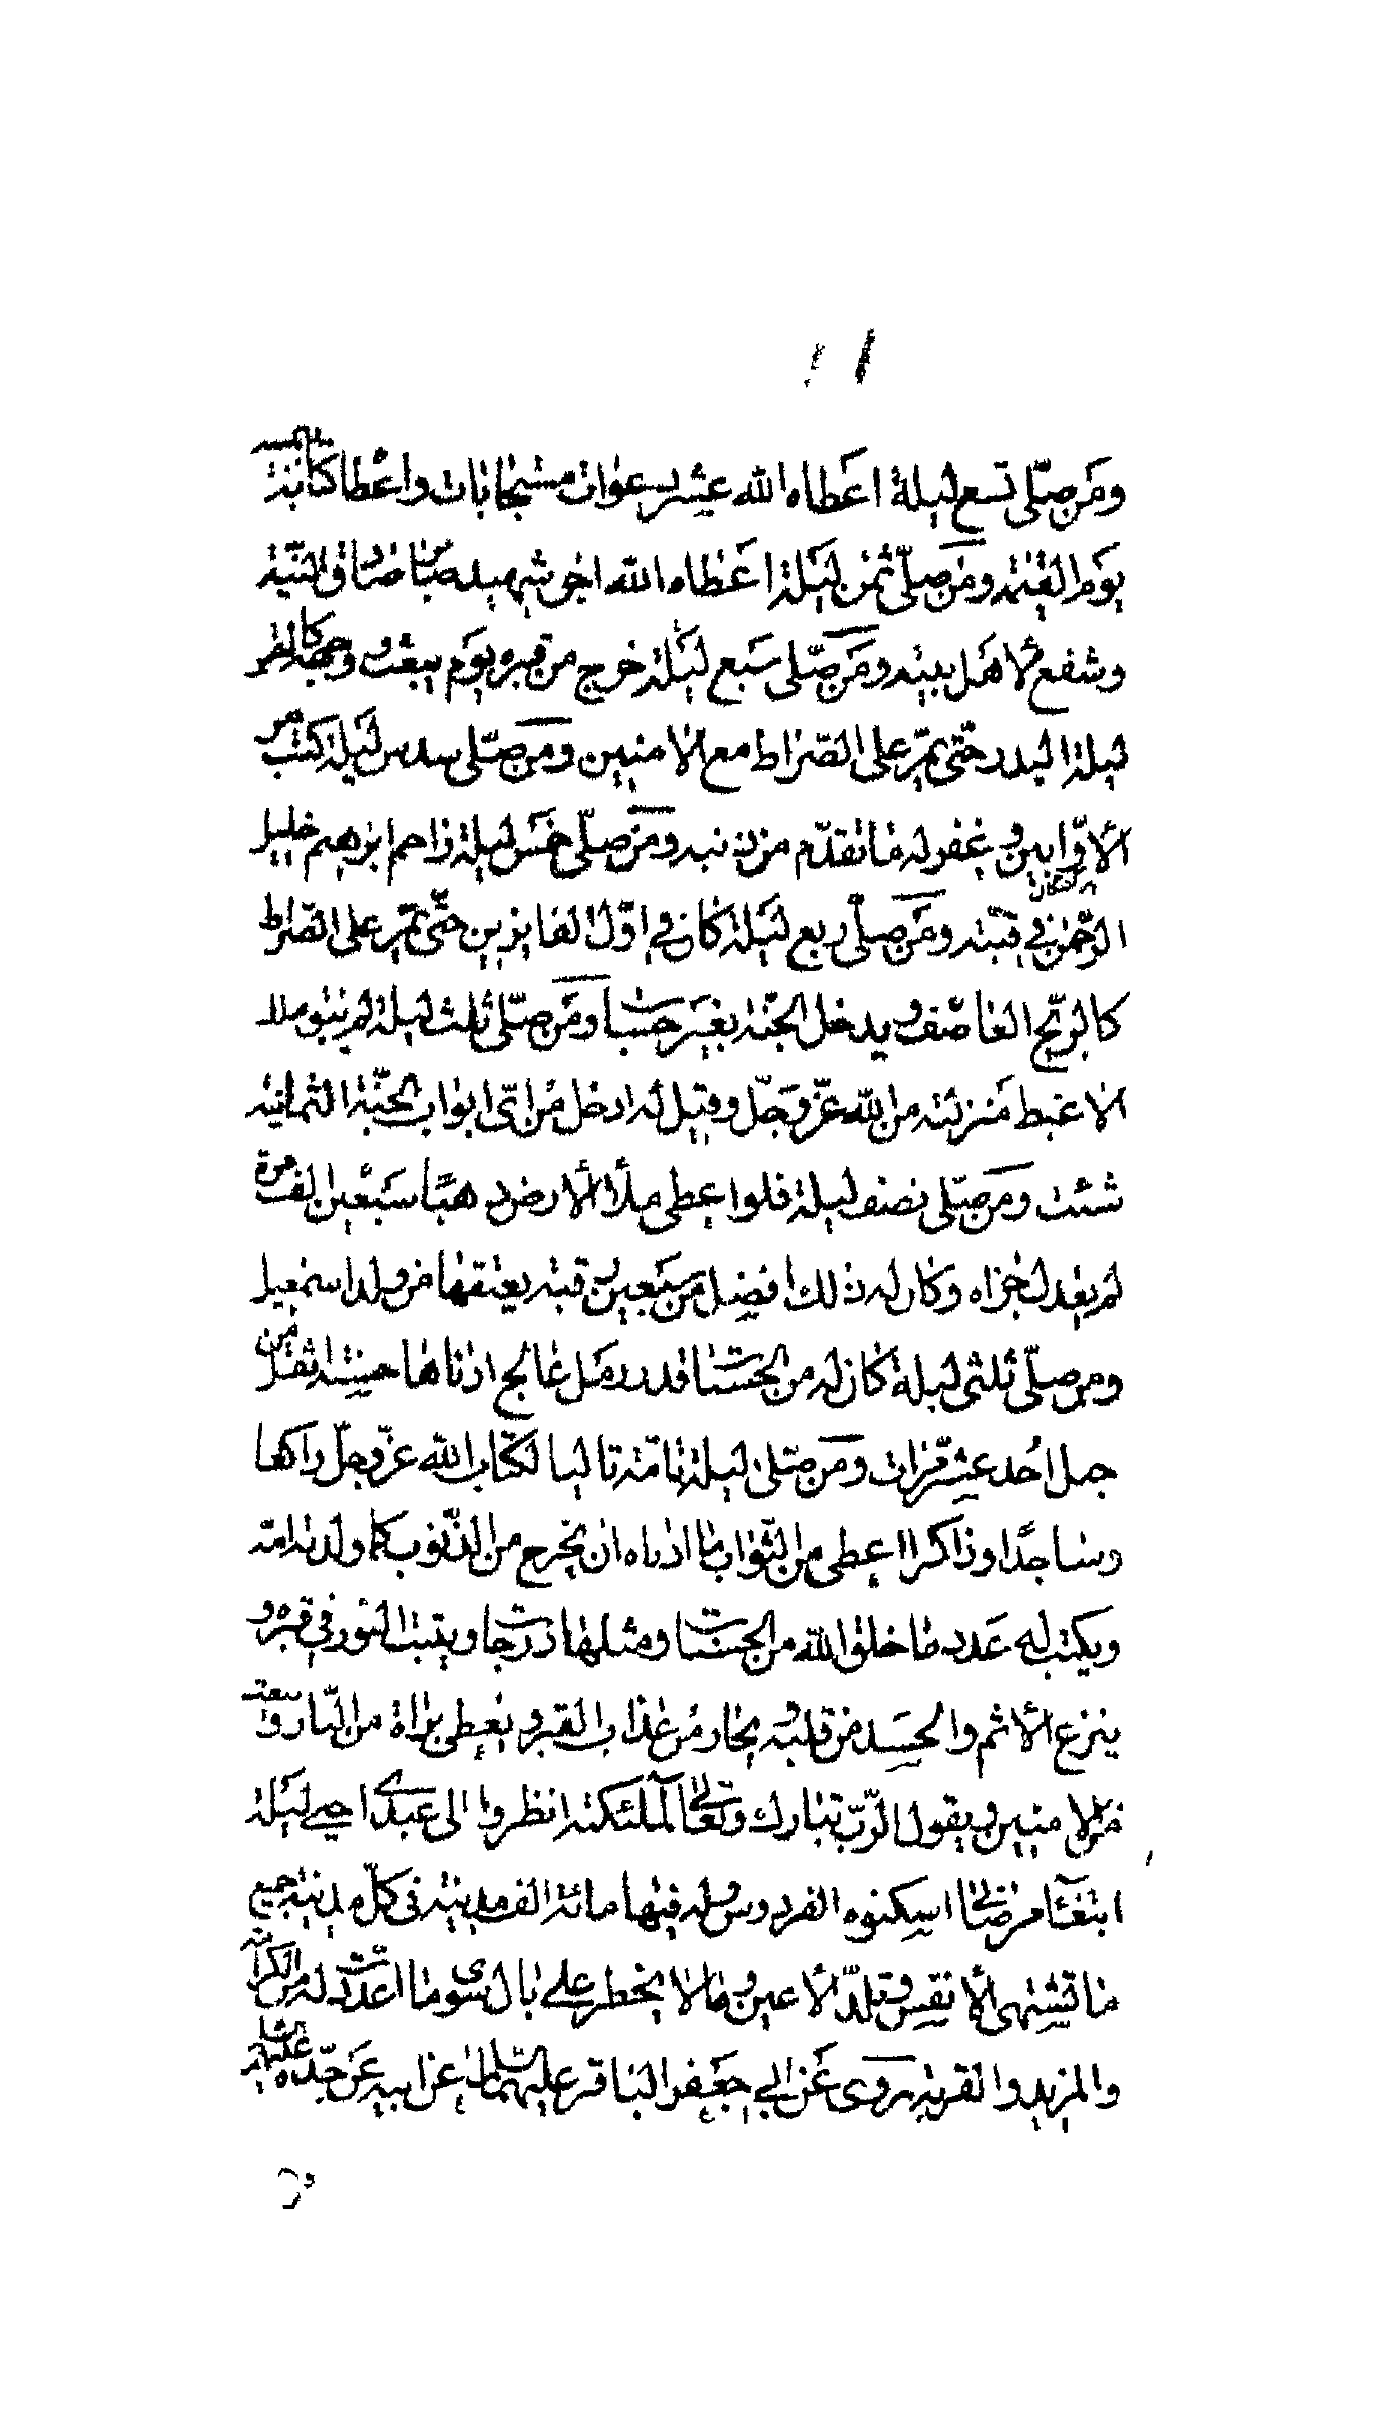 ومن صلّى تسع ليلة اعطاه الله عشر دعوات مستجابات واعطا كتابه بيمينه
يوم القيمة ومن صلّى ثمن ليلة اعطاه الله اجر شهيد صابر صادق النيّة
وشفع لاهل بيته ومن صلّى سبع ليلة خرج من قبره يوم يبعث ووجهه كالقمر
ليلة البدر حتى يمرّ على الصّراط مع الامنين ومن صلّى سدس ليلة كتب من
الاوّابين وغفر له ما تقدّم من ذنبه ومن صلّى خمس ليلة زاحم ابرهيم خليل
الرّحمن في قبّته ومن صلّى ربع ليلة كان في اوّل الفايزين حتّى يمرّ على الصّراط
كالرّيح العاصف ويدخل الجنّة بغير حساب ومن صلّى ثلث ليلة لم يبق ملك
الا غبط منزلته من الله عزّ وجلّ وقيل له ادخل من اىّ ابواب الجنّة الثمانية
شئت ومن صلّى نصف ليلة فلو اعطى ملأ الأرض ذهبًا سبعين الف مرة
لم يعدل جزاه وكان له ذلك افضل من سبعين رقبة يعتقها من ولد اسمعيل
ومن صلّى ثلثى ليلة كان له من الحسنات قدر رمل عالج ادناها حسنة اثقل من
جبل احد عشر مرّات ومن صلّى ليلة تامّة تاليا لكتاب الله عزّ وجلّ راكعا
وساجدًا وذاكرا اعطى من الثواب ما ادناه ان يخرج من الذّنوب كما ولدته امّه
ويكتب له عدد ما خلق الله من الحسنات ومثلها درجات ويثبت النّور في قبره و
ينزع الأثم والحسد من قلبه ويجار من عذاب القبر ويعطى براة من النّار ويبعث
من الامنين ويقول الرّبّ تبارك وتعالى لملئكته انظروا الى عبدى احيى ليلة
ابتغآء مرضاتى اسكنوه الفردوس وله فيها مائة الف مدينة فى كلّ مدينة جميع
ما تشتهى الأنفس وتلذّ الأعين وما لا يخطر على بال سوى ما اعددت له من الكرامة
والمزيد والقربة روى عن ابى جعفر الباقر عليهما السّلام عن ابيه عن جدّه عليهم السلام